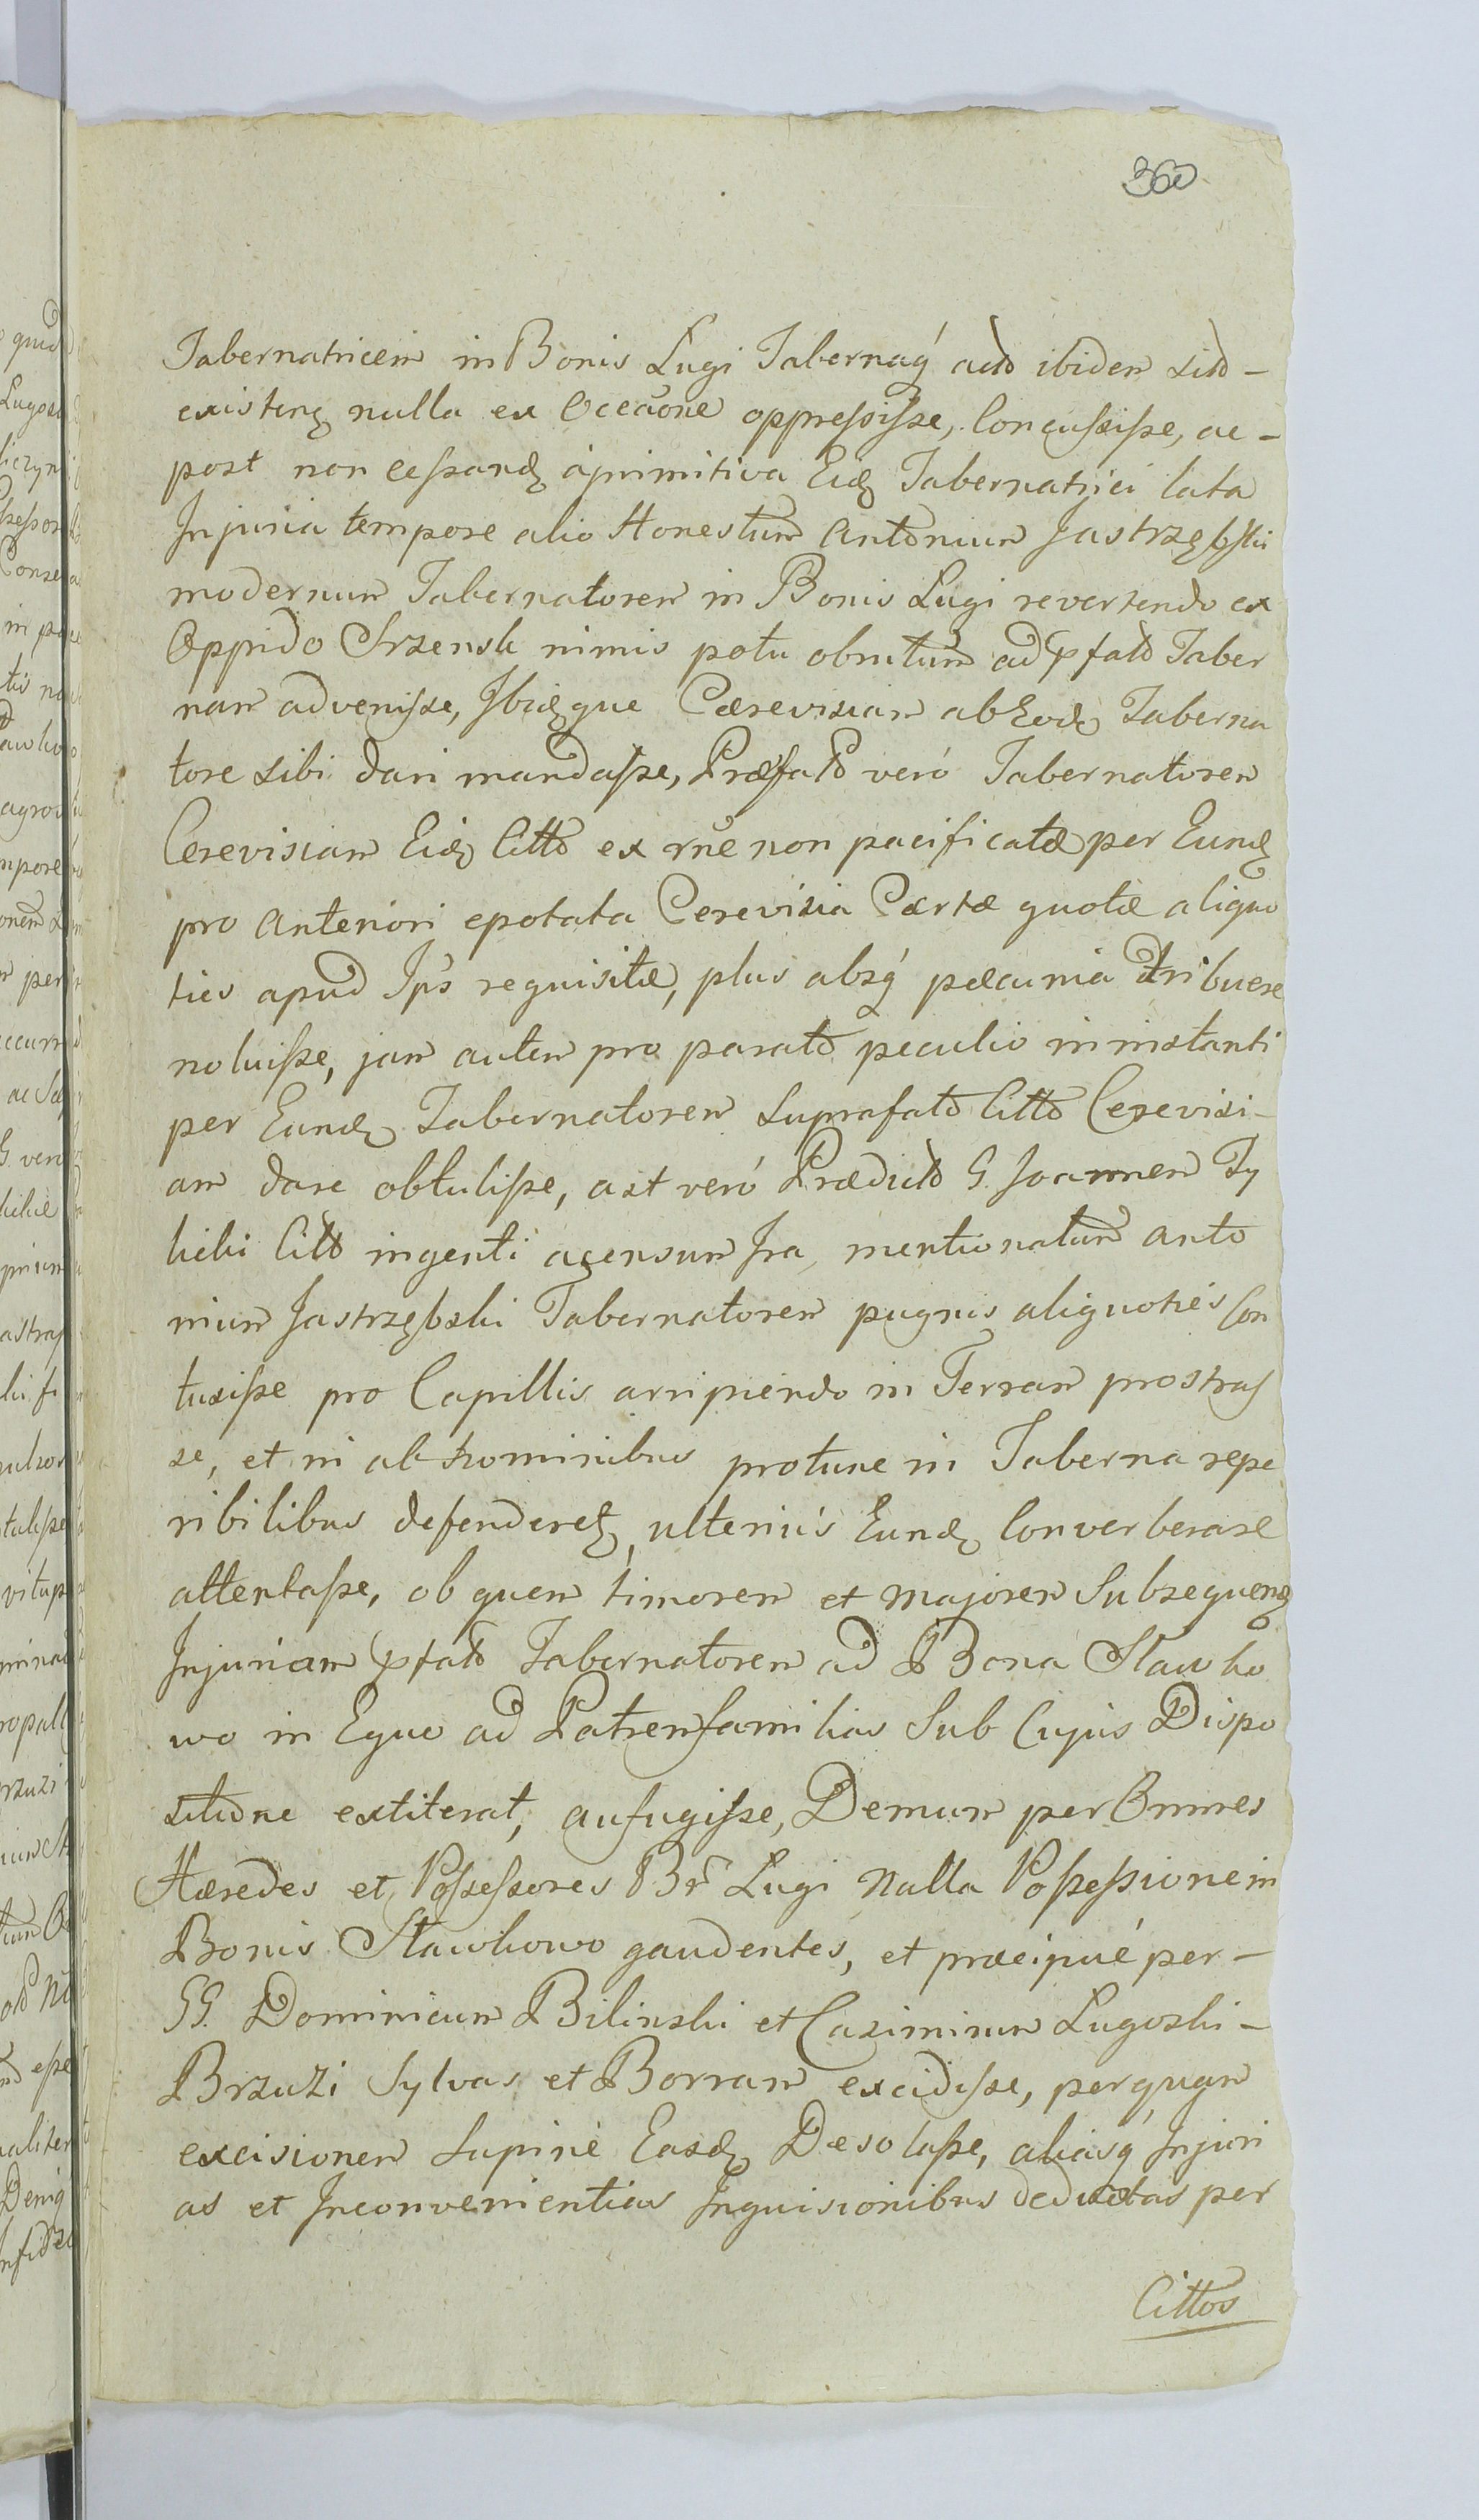 360
Tabernatricem in Bonis Lugi Tabernaq́ acto ibidem sito –
existenę nulla ex Occaone oppressisse, Concussisse, ac –
post non cessandę á primitiva Eidę Tabernatrici lata
Injuria tempore alio Honestum Antonium Jastrzębski
modernum Tabernatorem in Bonis Lugi revertendo ex
Oppido Srzensk nimis potu obrutum ad pfato Taber
nam advenisse, Ibidęque Cærevisiam ab Eodę Taberna
tore sibi dari mandasse, Præfato veró Tabernatorem
Cerevisiam Eidę Citto ex rne non pacificatæ per Eundę
pro anteriori epotata Cerevisia Certæ quotæ aliquo
ties apud Ips requisitæ, plus absq́ pæcunia tribuere
noluisse, jam autem pro parato peculio in instanti
per Eundę Tabernatorem Suprafato Citto Cerevisi–
am dare obtulisse, ast veró Prædicto G. Joannem Ty
licki Citto ingenti acensum Ira, mentionatum Anto
nium Jastrzębski Tabernatorem pugnis aliquoties Con
tusisse pro Capillis arripiendo in Terram prostras
se, et ni ab hominibus protunc in Taberna repe
ribilibus defenderetę, ulteriús Eundę Converberare
attentasse, ob quem timorem et majorem Subsequenę
Injuriam pfato Tabernatorem ad Bona Sławko
wo in Equo ad Patremfamilias Sub Cujus Dispo
sitione extiterat, aufugisse, Demum per Omnes
Hæredes et Possessores Br Lugi Nulla Possessione in
Bonis Sławkowo gaudentes, et præcipué per –
GG. Dominicum Bilinski et Casimirum Lugoski –
Brzuzi Sylvas et Borram excidisse, per quam
excisionem Supiné Easdę Desolasse, aliasq́ Injuri
as et Inconvenientias Inquisionibus deductas per
Cittos